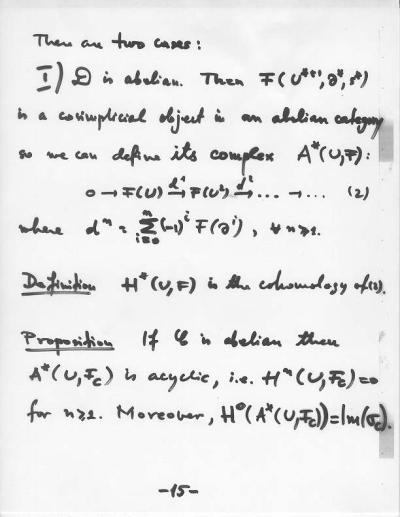 There are two cases:
I) 𝔇 is abelian. Then F(U*⁺¹, ∂*, s*)
is a cosimplicial object in an abelian category
so we can define its complex A*(U,F):
0 → F(U) →^{d¹} F(U²) →^{d²} ... → ... (2)
where dⁿ = Σ_{i=0}^{n} (-1)ⁱ F(∂ⁱ), ∀ n≥1.
Definition H*(U,F) is the cohomology of (2).
Proposition If 𝒞 is abelian then
A*(U,F_c) is acyclic, i.e. Hⁿ(U,F_c)=0
for n≥1. Moreover, H⁰(A*(U,F_c))=Im(σ_c).
-15-